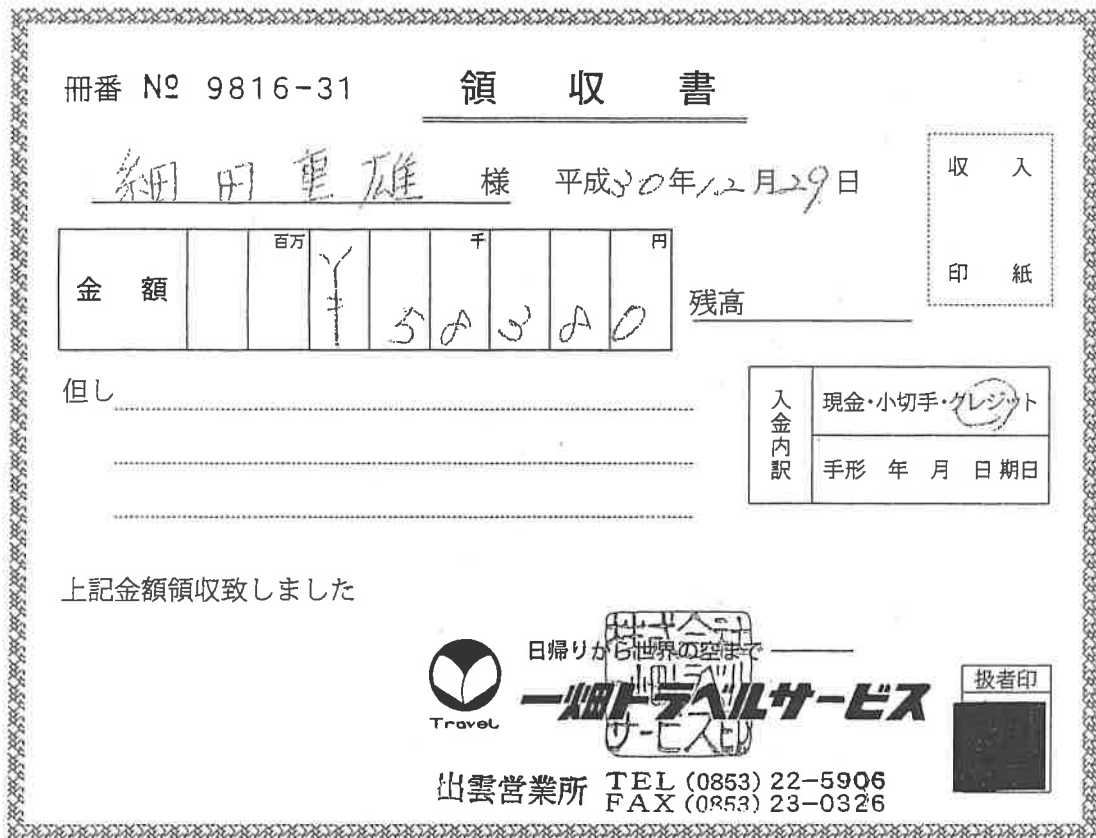 冊番 № 9816-31 領収書
細田重雄 様 平成30年12月29日
収入
印紙
金額 百万 千 円
¥58380
残高
但し
入金内訳 現金・小切手・クレジット
手形 年 月 日期日
上記金額領収致しました
株式会社
一畑トラベル
サービス印
日帰りから世界の空まで
Travel 一畑トラベルサービス
扱者印
出雲営業所 TEL (0853) 22-5906
FAX (0853) 23-0326